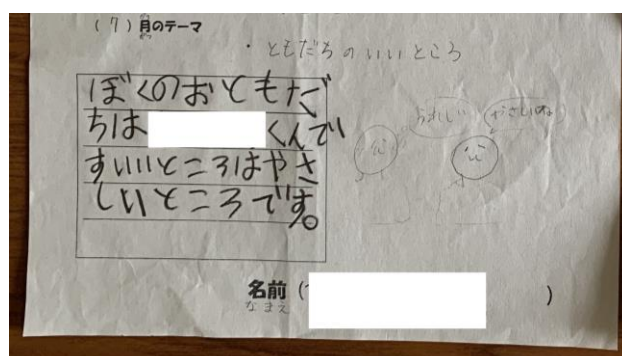 (7)月のテーマ
がつ
・ともだちのいいところ
ぼくのおともだ
ちは くんで
すいいところはやさ
しいところです。
うれしい
やさしいね
名前 ( )
なまえ